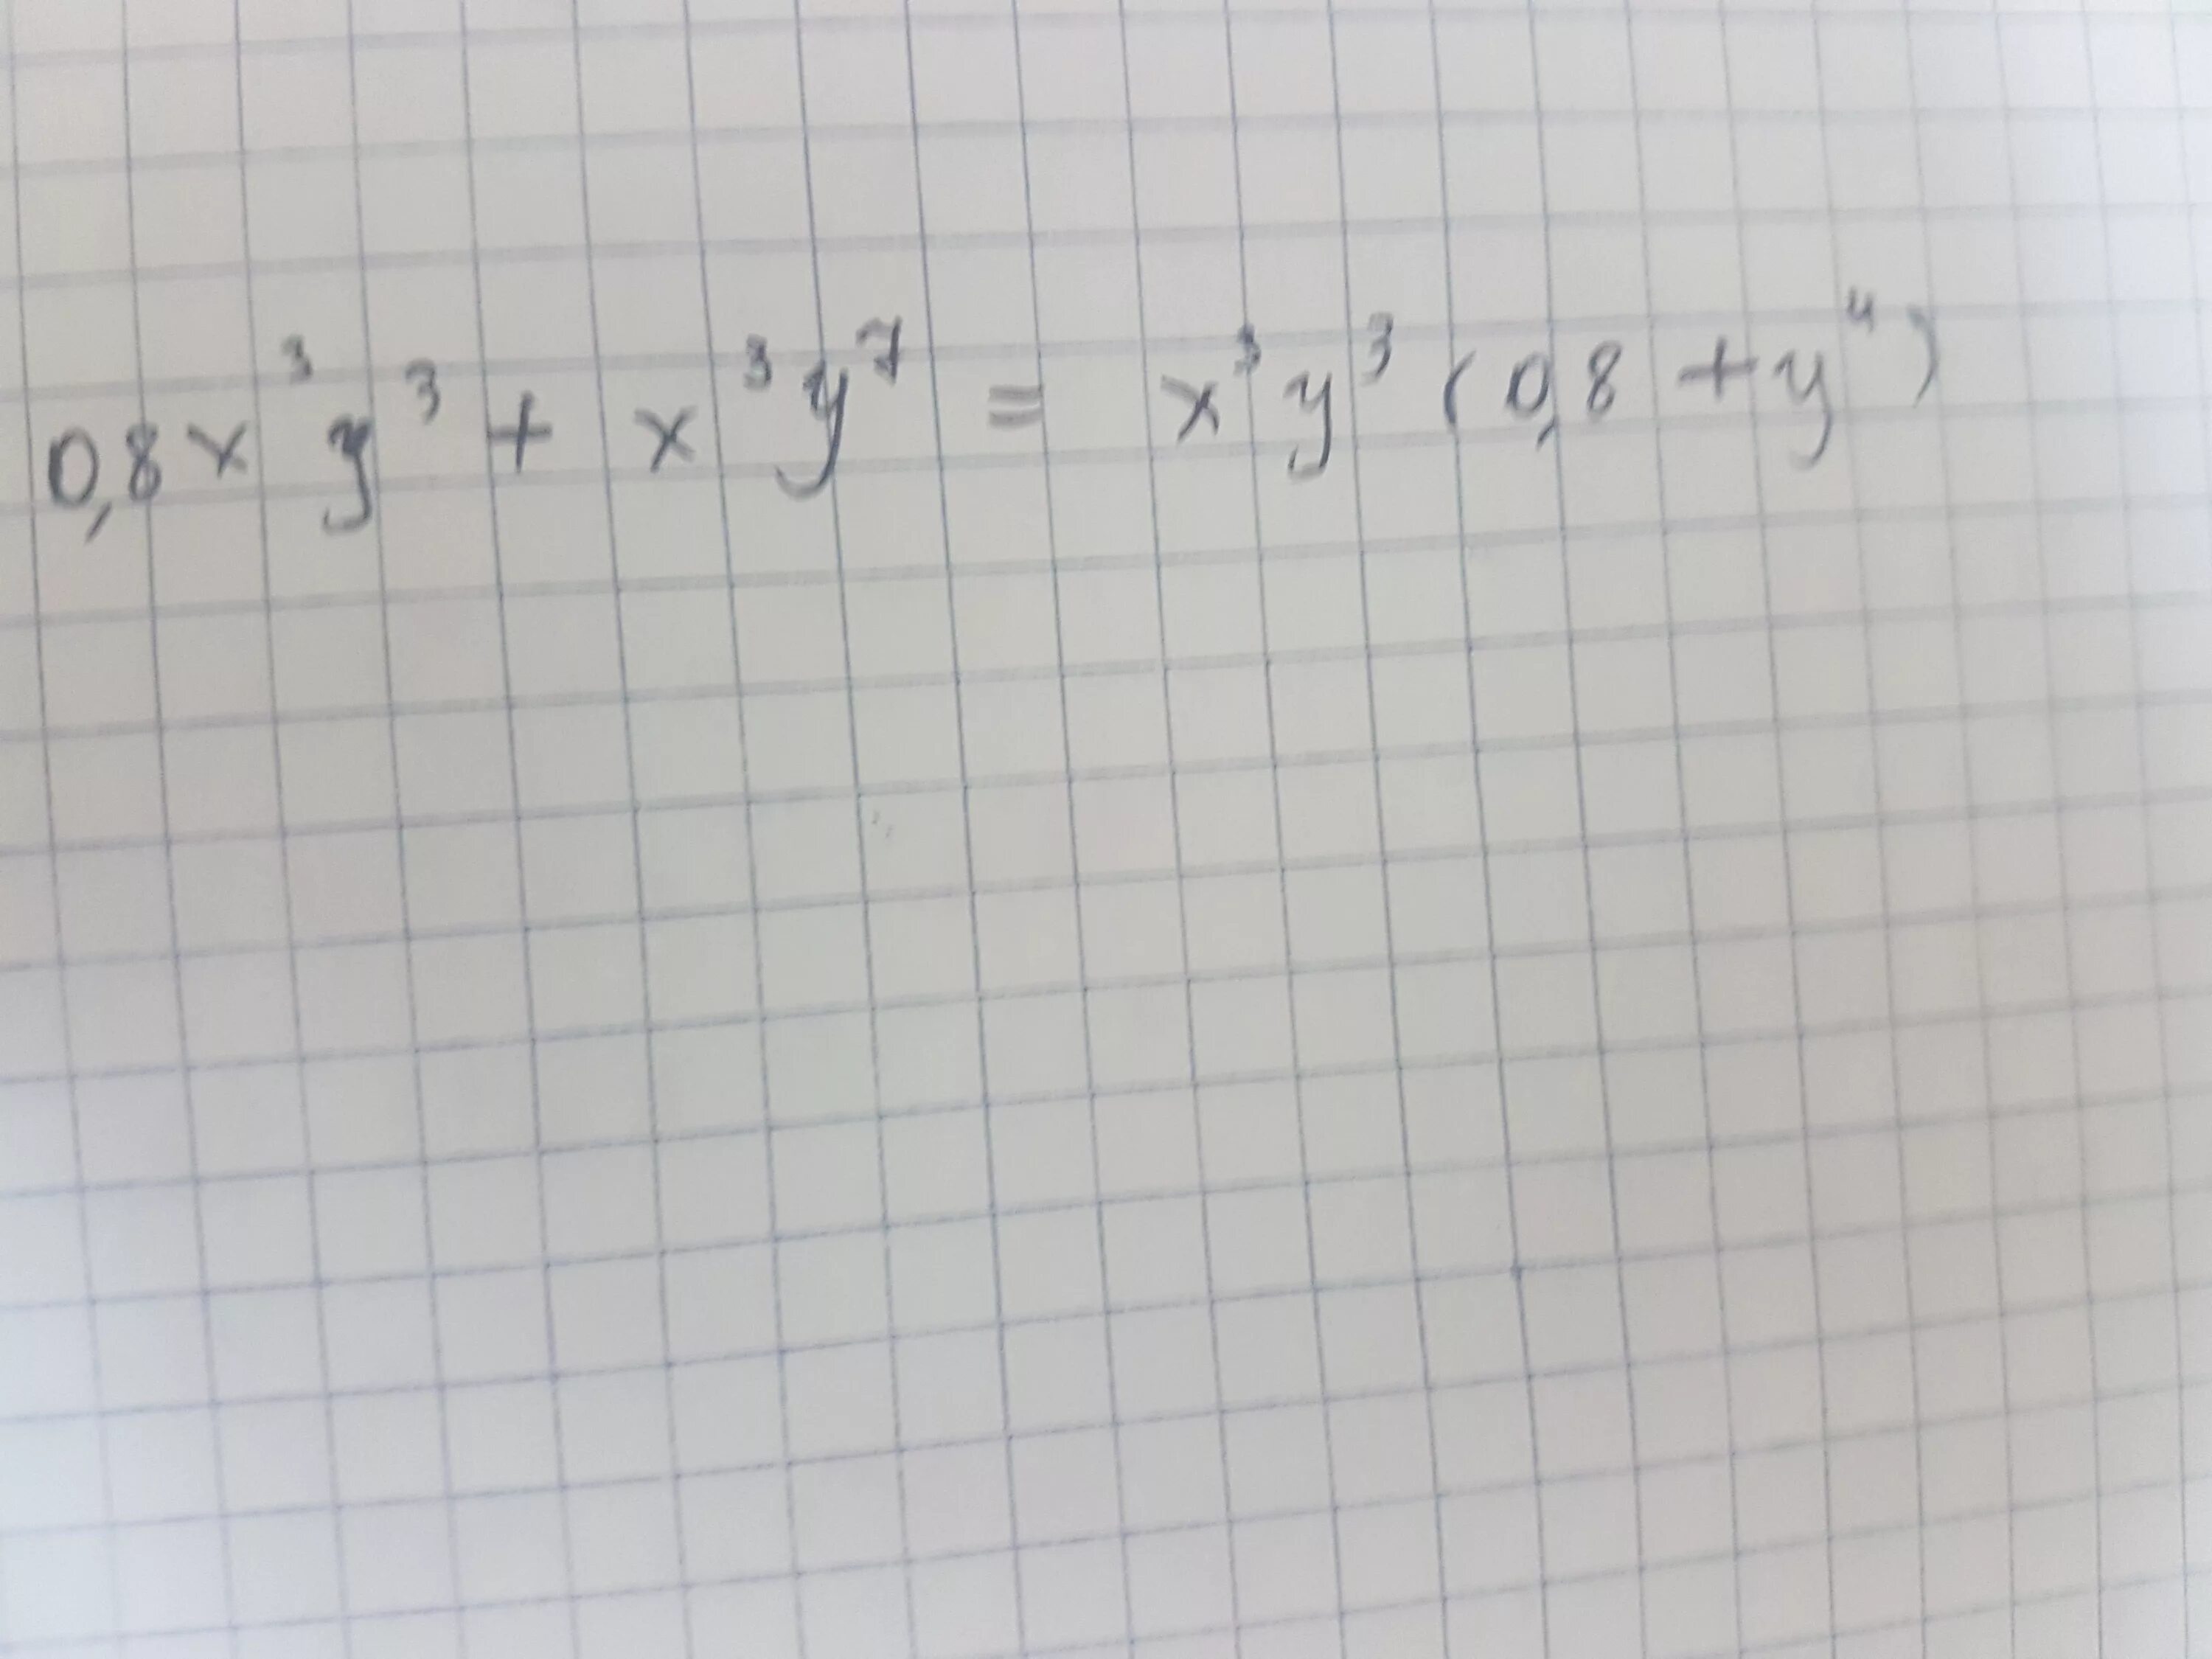 0,8x³y³ + x³y⁷ = x³y³(0,8 + y⁴)